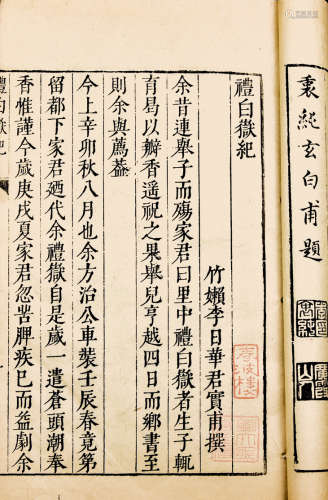 袁䋲玄白甫題
禮白嶽紀
竹嬾李日華君實甫撰
余昔連舉子而殤家君曰里中禮白嶽者生子輒
育曷以瓣香遥祝之果舉兒亨越四日而鄉書至
則余與薦葢
今上辛卯秋八月也余方治公車裝壬辰春竟第
留都下家君廼代余禮嶽自是歲一遣蒼頭潮奉
香惟謹今歲庚戌夏家君忽苦脾疾巳而益劇余
禮白嶽紀